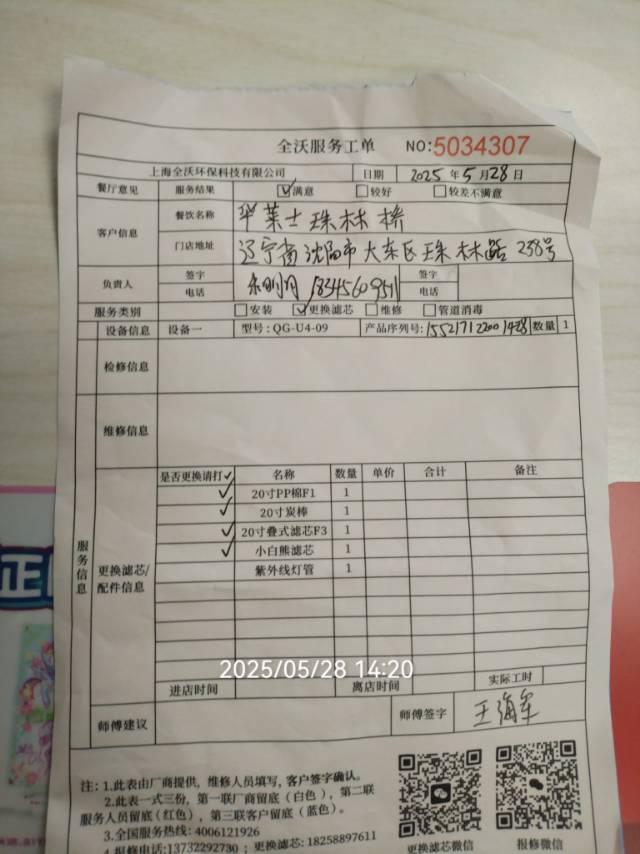 全沃服务工单 NO:5034307
上海全沃环保科技有限公司 日期 2025 年 5 月 28 日
餐厅意见 服务结果 ☑满意 □较好 □较差不满意
客户信息 餐饮名称 华莱士珠林桥
门店地址 辽宁省沈阳市大东区珠林路258号
负责人 签字 签字
电话 18345609511 电话
服务类别 □安装 ☑更换滤芯 □维修 □管道消毒
设备信息 设备一 型号: QG-U4-09 产品序列号: 155217122001428 数量 1
检修信息
维修信息
服务信息
更换滤芯/配件信息
是否更换请打✓ 名称 数量 单价 合计 备注
✓ 20寸PP棉F1 1
✓ 20寸炭棒 1
✓ 20寸叠式滤芯F3 1
✓ 小白熊滤芯 1
紫外线灯管 1
2025/05/28 14:20
进店时间 离店时间 实际工时
师傅建议 师傅签字 王海军
注: 1.此表由厂商提供, 维修人员填写, 客户签字确认。
2.此表一式三份, 第一联厂商留底 (白色), 第二联
服务人员留底(红色), 第三联客户留底 (蓝色)。
3.全国服务热线: 4006121926
4.报修电话:13732292730 ; 更换滤芯: 18258897611
更换滤芯微信 报修微信
正